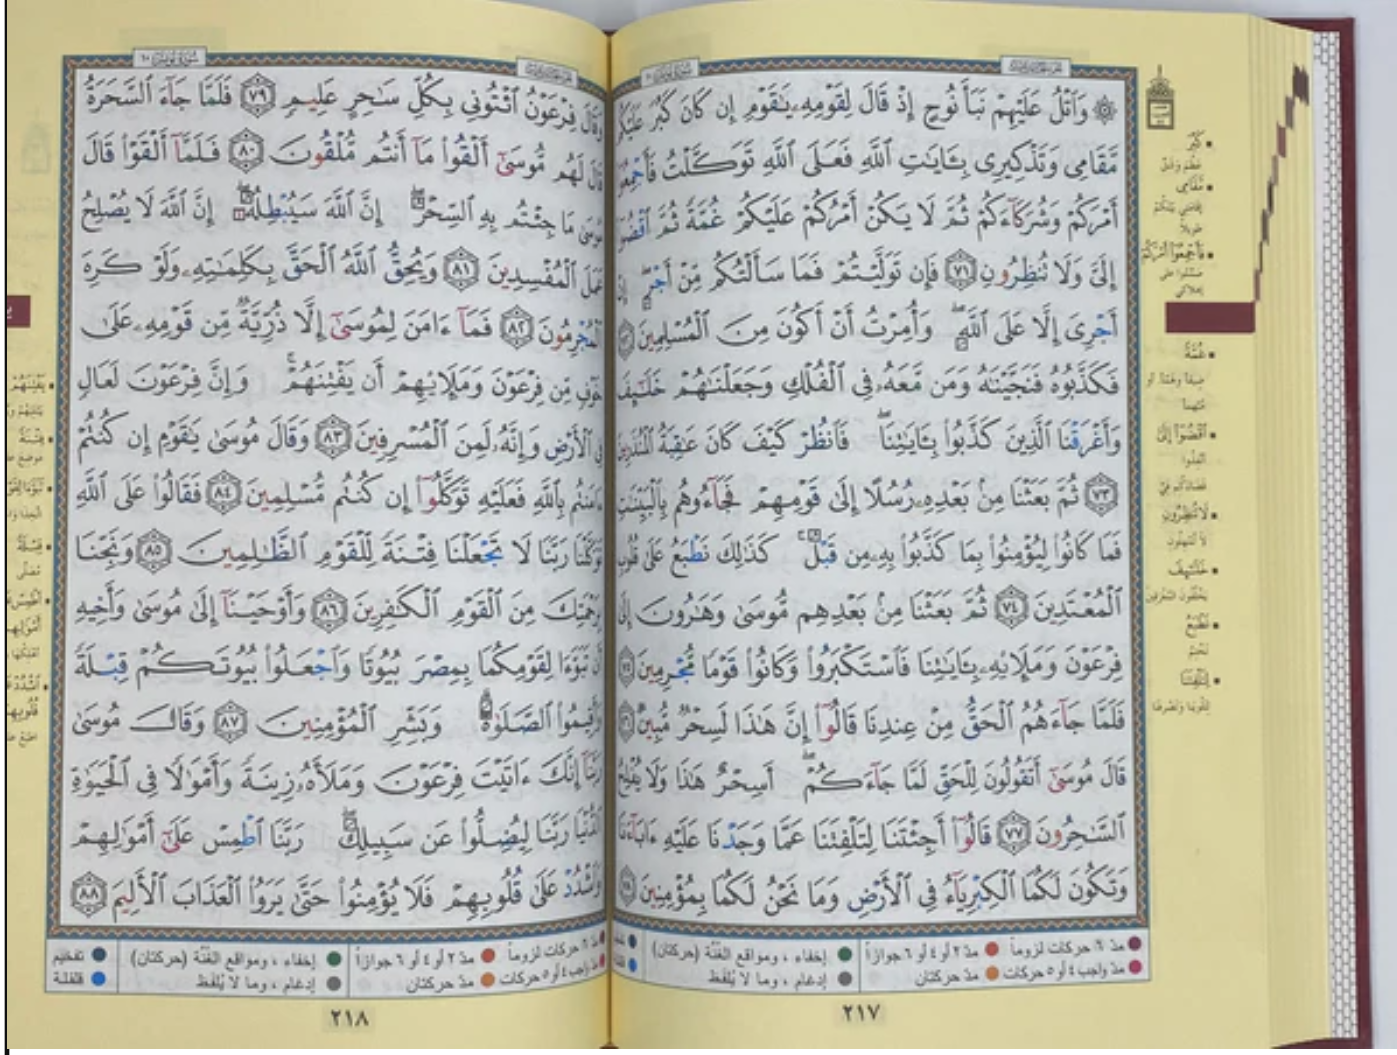 ۞ وَٱتْلُ عَلَيْهِمْ نَبَأَ نُوحٍ إِذْ قَالَ لِقَوْمِهِۦ يَٰقَوْمِ إِن كَانَ كَبُرَ عَلَيْكُم
مَّقَامِى وَتَذْكِيرِى بِـَٔايَٰتِ ٱللَّهِ فَعَلَى ٱللَّهِ تَوَكَّلْتُ فَأَجْمِعُوٓا۟
أَمْرَكُمْ وَشُرَكَآءَكُمْ ثُمَّ لَا يَكُنْ أَمْرُكُمْ عَلَيْكُمْ غُمَّةً ثُمَّ ٱقْضُوٓا۟
إِلَىَّ وَلَا تُنظِرُونِ ٧١ فَإِن تَوَلَّيْتُمْ فَمَا سَأَلْتُكُم مِّنْ أَجْرٍ ۖ إِنْ
أَجْرِىَ إِلَّا عَلَى ٱللَّهِ ۖ وَأُمِرْتُ أَنْ أَكُونَ مِنَ ٱلْمُسْلِمِينَ ٧٢
فَكَذَّبُوهُ فَنَجَّيْنَٰهُ وَمَن مَّعَهُۥ فِى ٱلْفُلْكِ وَجَعَلْنَٰهُمْ خَلَٰٓئِفَ
وَأَغْرَقْنَا ٱلَّذِينَ كَذَّبُوا۟ بِـَٔايَٰتِنَا ۖ فَٱنظُرْ كَيْفَ كَانَ عَٰقِبَةُ ٱلْمُنذَرِينَ
٧٣ ثُمَّ بَعَثْنَا مِنۢ بَعْدِهِۦ رُسُلًا إِلَىٰ قَوْمِهِمْ فَجَآءُوهُم بِٱلْبَيِّنَٰتِ
فَمَا كَانُوا۟ لِيُؤْمِنُوا۟ بِمَا كَذَّبُوا۟ بِهِۦ مِن قَبْلُ ۚ كَذَٰلِكَ نَطْبَعُ عَلَىٰ قُلُوبِ
ٱلْمُعْتَدِينَ ٧٤ ثُمَّ بَعَثْنَا مِنۢ بَعْدِهِم مُّوسَىٰ وَهَٰرُونَ إِلَىٰ
فِرْعَوْنَ وَمَلَإِي۟هِۦ بِـَٔايَٰتِنَا فَٱسْتَكْبَرُوا۟ وَكَانُوا۟ قَوْمًا مُّجْرِمِينَ ٧٥
فَلَمَّا جَآءَهُمُ ٱلْحَقُّ مِنْ عِندِنَا قَالُوٓا۟ إِنَّ هَٰذَا لَسِحْرٌ مُّبِينٌ ٧٦
قَالَ مُوسَىٰٓ أَتَقُولُونَ لِلْحَقِّ لَمَّا جَآءَكُمْ ۖ أَسِحْرٌ هَٰذَا وَلَا يُفْلِحُ
ٱلسَّٰحِرُونَ ٧٧ قَالُوٓا۟ أَجِئْتَنَا لِتَلْفِتَنَا عَمَّا وَجَدْنَا عَلَيْهِ ءَابَآءَنَا
وَتَكُونَ لَكُمَا ٱلْكِبْرِيَآءُ فِى ٱلْأَرْضِ وَمَا نَحْنُ لَكُمَا بِمُؤْمِنِينَ ٧٨
كَبُرَ
مَّقَامِى
طويلاً
فَأَجْمِعُوٓا۟ أَمْرَكُمْ
غُمَّةً
ٱقْضُوٓا۟ إِلَىَّ
لَا تُنظِرُونِ
خَلَٰٓئِفَ
نَطْبَعُ
نختم
لِتَلْفِتَنَا
مدّ ٦ حركات لزوماً
مدّ ٢ أو ٤ أو ٦ جوازاً
إخفاء ، ومواقع الغُنَّة (حركتان)
مدّ واجب ٤ أو ٥ حركات
مدّ حركتان
إدغام ، وما لا يُلفَظ
٢١٧
سُورَةُ يُونُسَ ١٠
وَقَالَ فِرْعَوْنُ ٱئْتُونِى بِكُلِّ سَٰحِرٍ عَلِيمٍ ٧٩ فَلَمَّا جَآءَ ٱلسَّحَرَةُ
قَالَ لَهُم مُّوسَىٰٓ أَلْقُوا۟ مَآ أَنتُم مُّلْقُونَ ٨٠ فَلَمَّآ أَلْقَوْا۟ قَالَ
مُوسَىٰ مَا جِئْتُم بِهِ ٱلسِّحْرُ ۖ إِنَّ ٱللَّهَ سَيُبْطِلُهُۥٓ ۖ إِنَّ ٱللَّهَ لَا يُصْلِحُ
عَمَلَ ٱلْمُفْسِدِينَ ٨١ وَيُحِقُّ ٱللَّهُ ٱلْحَقَّ بِكَلِمَٰتِهِۦ وَلَوْ كَرِهَ
ٱلْمُجْرِمُونَ ٨٢ فَمَآ ءَامَنَ لِمُوسَىٰٓ إِلَّا ذُرِّيَّةٌ مِّن قَوْمِهِۦ عَلَىٰ
خَوْفٍ مِّن فِرْعَوْنَ وَمَلَإِي۟هِمْ أَن يَفْتِنَهُمْ ۚ وَإِنَّ فِرْعَوْنَ لَعَالٍ
فِى ٱلْأَرْضِ وَإِنَّهُۥ لَمِنَ ٱلْمُسْرِفِينَ ٨٣ وَقَالَ مُوسَىٰ يَٰقَوْمِ إِن كُنتُمْ
ءَامَنتُم بِٱللَّهِ فَعَلَيْهِ تَوَكَّلُوٓا۟ إِن كُنتُم مُّسْلِمِينَ ٨٤ فَقَالُوا۟ عَلَى ٱللَّهِ
تَوَكَّلْنَا رَبَّنَا لَا تَجْعَلْنَا فِتْنَةً لِّلْقَوْمِ ٱلظَّٰلِمِينَ ٨٥ وَنَجِّنَا
بِرَحْمَتِكَ مِنَ ٱلْقَوْمِ ٱلْكَٰفِرِينَ ٨٦ وَأَوْحَيْنَآ إِلَىٰ مُوسَىٰ وَأَخِيهِ
أَن تَبَوَّءَا لِقَوْمِكُمَا بِمِصْرَ بُيُوتًا وَٱجْعَلُوا۟ بُيُوتَكُمْ قِبْلَةً
وَأَقِيمُوا۟ ٱلصَّلَوٰةَ ۗ وَبَشِّرِ ٱلْمُؤْمِنِينَ ٨٧ وَقَالَ مُوسَىٰ
رَبَّنَآ إِنَّكَ ءَاتَيْتَ فِرْعَوْنَ وَمَلَأَهُۥ زِينَةً وَأَمْوَٰلًا فِى ٱلْحَيَوٰةِ
ٱلدُّنْيَا رَبَّنَا لِيُضِلُّوا۟ عَن سَبِيلِكَ ۖ رَبَّنَا ٱطْمِسْ عَلَىٰٓ أَمْوَٰلِهِمْ
وَٱشْدُدْ عَلَىٰ قُلُوبِهِمْ فَلَا يُؤْمِنُوا۟ حَتَّىٰ يَرَوُا۟ ٱلْعَذَابَ ٱلْأَلِيمَ ٨٨
مدّ ٦ حركات لزوماً
مدّ ٢ أو ٤ أو ٦ جوازاً
إخفاء ، ومواقع الغُنَّة (حركتان)
تفخيم
مدّ واجب ٤ أو ٥ حركات
مدّ حركتان
إدغام ، وما لا يُلفَظ
قلقلة
٢١٨